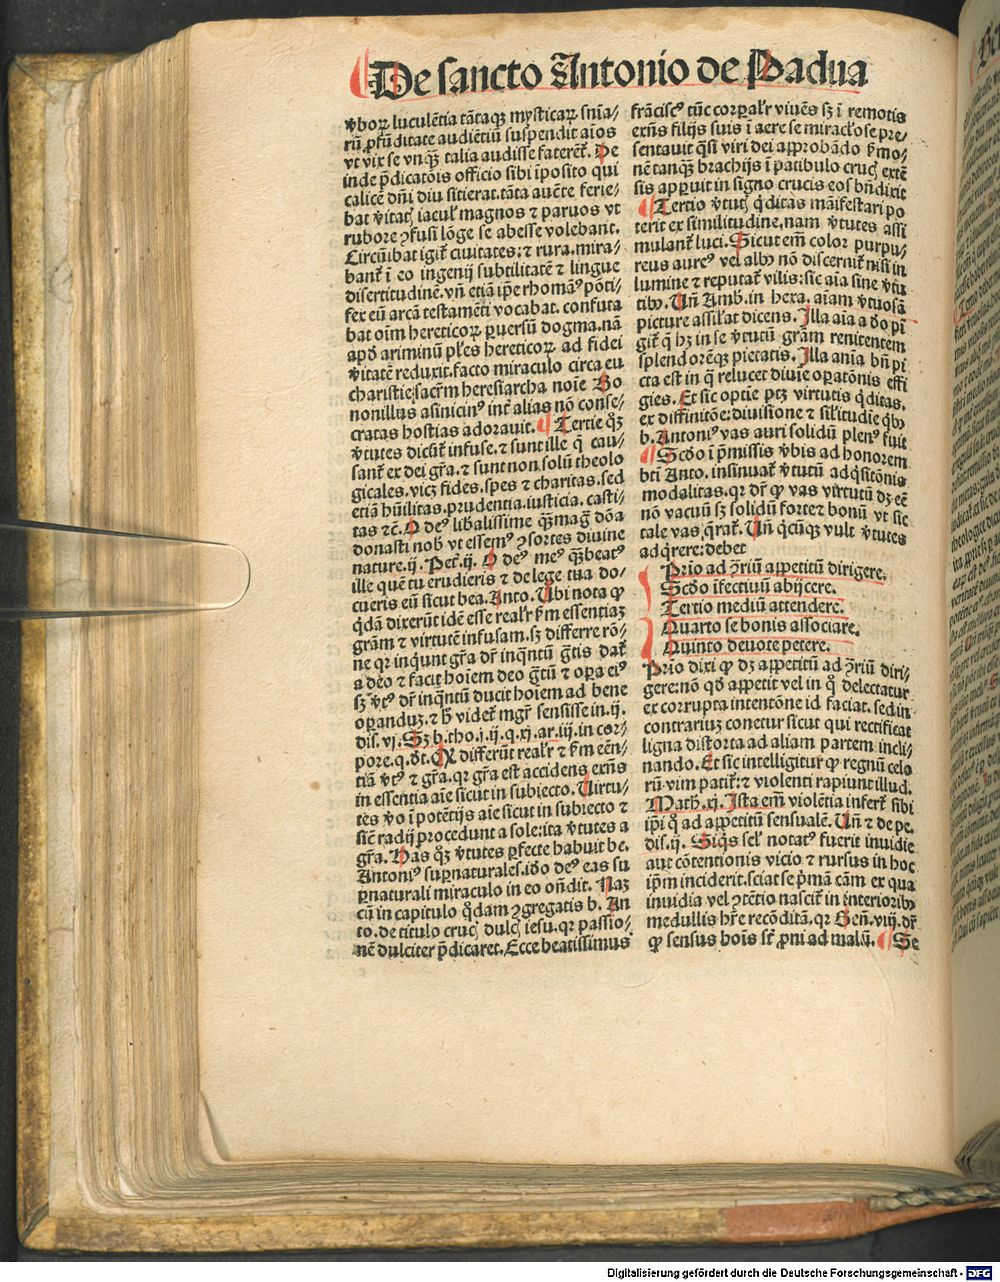 De sancto Antonio de Padua
v̄boꝝ luculētia tātaqꝫ mysticaꝝ sniā/
rū ꝓfūditate audiētiū suspendit aīos
vt vix se vnqꝫ talia audisse faterēt̄. De
inde p̄dicatōis officio sibi īposito qui
calicē dn̄i diu sitierat. tāta auēte ferie/
bat v̄itatꝭ iacul̄ magnos ⁊ paruos vt
rubore ꝯfusi lōge se abesse volebant.
Circūibat igit̄ ciuitates: ⁊ rura. mira/
bant̄ ī eo ingenij subtilitatē ⁊ lingue
disertitudinē. vn̄ etiā ip̄e rhomanꝰ pōti/
fex eū arcā testamēti vocabat. confuta
bat oīm hereticoꝝ ꝑuersū dogma. nā
apd̄ ariminū pl̄es hereticoꝝ ad fidei
v̄itatē reduxit. facto miraculo circa eu
charistie sacr̄m heresiarcha noīe Bo
nonillus asininꝰ int̄ alias nō conse/
cratas hostias adorauit. ¶ Tertie q̄ꝫ
v̄tutes dicūt̄ infuse. ⁊ sunt ille q̄ cau/
sant̄ ex dei gr̄a. ⁊ sunt non solū theolo
gicales. vicꝫ fides. spes ⁊ charitas. sed
etiā hūilitas. prudentia. iusticia. casti/
tas ⁊c̄. O deꝰ lib̄alissime q̄ꝫ maḡ dōa
donasti nob̄ vt essemꝰ ꝯsortes diuine
nature. ij. Pet̄. ij. O deꝰ meꝰ q̄ꝫ beatꝰ
ille quē tu erudieris ⁊ de lege tua do/
cueris eū sicut bea. Anto. Ubi nota ꝙ
q̄dā dixerūt idē esse real̄r ẜm essentiaꝫ
grām ⁊ virtutē infusam. sꝫ differre rō/
ne qr inq̄unt gr̄a dr̄ inq̄ntū gr̄tis dat̄
a deo ⁊ facit hoīem deo gr̄tū ⁊ oꝑa eiꝰ
sꝫ v̄tꝰ dr̄ inq̄ntū ducit hoīem ad bene
oꝑanduꝫ. ⁊ h̄ videt̄ mgr̄ sensisse in. ij.
dis. vj. Sꝫ b. tho. j. ij. q. xj. ar. iij. in cor/
pore. q. dt̄. Ꝙ differūt real̄r ⁊ ẜm eēn/
tiā v̄tꝰ ⁊ gr̄a. qr gr̄a est accidens exn̄s
in essentia aīe sicut in subiecto. Uirtu/
tes v̄o ī potētijs aīe sicut in subiecto ⁊
sic̄ radij procedunt a sole: ita v̄tutes a
gr̄a. Has q̄ꝫ v̄tutes ꝑfecte habuit be.
Antoniꝰ suꝑnaturales. iō deꝰ eas su
ꝑnaturali miraculo in eo on̄dit. Naꝫ
cū in capitulo q̄dam ꝯgregatis b. An
to. de titulo crucꝭ dulcꝭ iesu. qr passio/
nē dulciter p̄dicaret. Ecce beatissimus
frāciscꝰ tūc corꝑal̄r viuēs sꝫ ī remotis
exn̄s filijs suis ī aere se miracl̄ose pre/
sentauit q̄si viri dei approbādo ẜmo/
nē tanqꝫ brachijs ī patibulo crucꝭ extē
sis apparuit in signo crucis eos bn̄dixit
¶ Tertio v̄tutꝭ q̄ditas māifestari po
terit ex similitudine. nam v̄tutes assi
mulant̄ luci. Sicut em̄ color purpu/
reus aureꝰ vel albꝰ nō discernit̄ nisi in
lumine ⁊ reputat̄ vilis: sic aīa sine v̄tu
tibꝫ. Un̄ Amb. in hexa. aīam v̄tuosā
picture assil̄at dicens. Illa aīa a deo pī
git̄ q̄ hꝫ in se v̄tutū grām renitentem
splendorēqꝫ pietatis. Illa aīa bn̄ pi
cta est in q̄ relucet diuīe oꝑatōnis effi
gies. Et sic optīe ptꝫ virtutis q̄ditas.
ex diffinitōe: diuisione ⁊ sil̄itudīe q̄bꝫ
b. Antoniꝰ vas auri solidū plenꝰ fuit
¶ Scd̄o ī p̄missis v̄bis ad honorem
bt̄i Anto. insinuat̄ v̄tutū adq̄sitōnis
modalitas. qr dr̄ ꝙ vas virtutū dꝫ eē
nō vacuū sꝫ solidū forte ⁊ bonū vt sic
tale vas q̄rat̄. Un̄ q̄cūqꝫ vult v̄tutes
adq̄rere: debet
Prīo ad ꝯ̄riū appetitū dirigere.
Scd̄o īfectiuū abijcere.
Tertio mediū attendere.
Quarto se bonis associare.
Quinto deuote petere.
Prīo dixi ꝙ dꝫ appetitū ad ꝯ̄riū diri/
gere: nō qd̄ appetit vel in q̄ delectatur
ex corrupta intentōne id faciat. sed in
contrariuꝫ conetur sicut qui rectificat
ligna distorta ad aliam partem incli/
nando. Et sic intelligitur ꝙ regnū celo
rū vim patit̄: ⁊ violenti rapiunt illud.
Math. xj. Ista em̄ violētia infert̄ sibi
ip̄i q̄ ad appetitū sensualē. Un̄ ⁊ de pe.
dis. ij. Siq̄s sel̄ notatꝰ fuerit inuidie
aut cōtentionis vicio ⁊ rursus in hoc
ip̄m inciderit. sciat se p̄mā cām ex qua
inuidia vel ꝯtētio nascit̄ in interioribꝫ
medullis hr̄e recōditā. qr Gen̄. viij. dr̄
ꝙ sensus hoīs st̄ ꝓni ad malū. ¶ Se
Digitalisierung gefördert durch die Deutsche Forschungsgemeinschaft - DFG